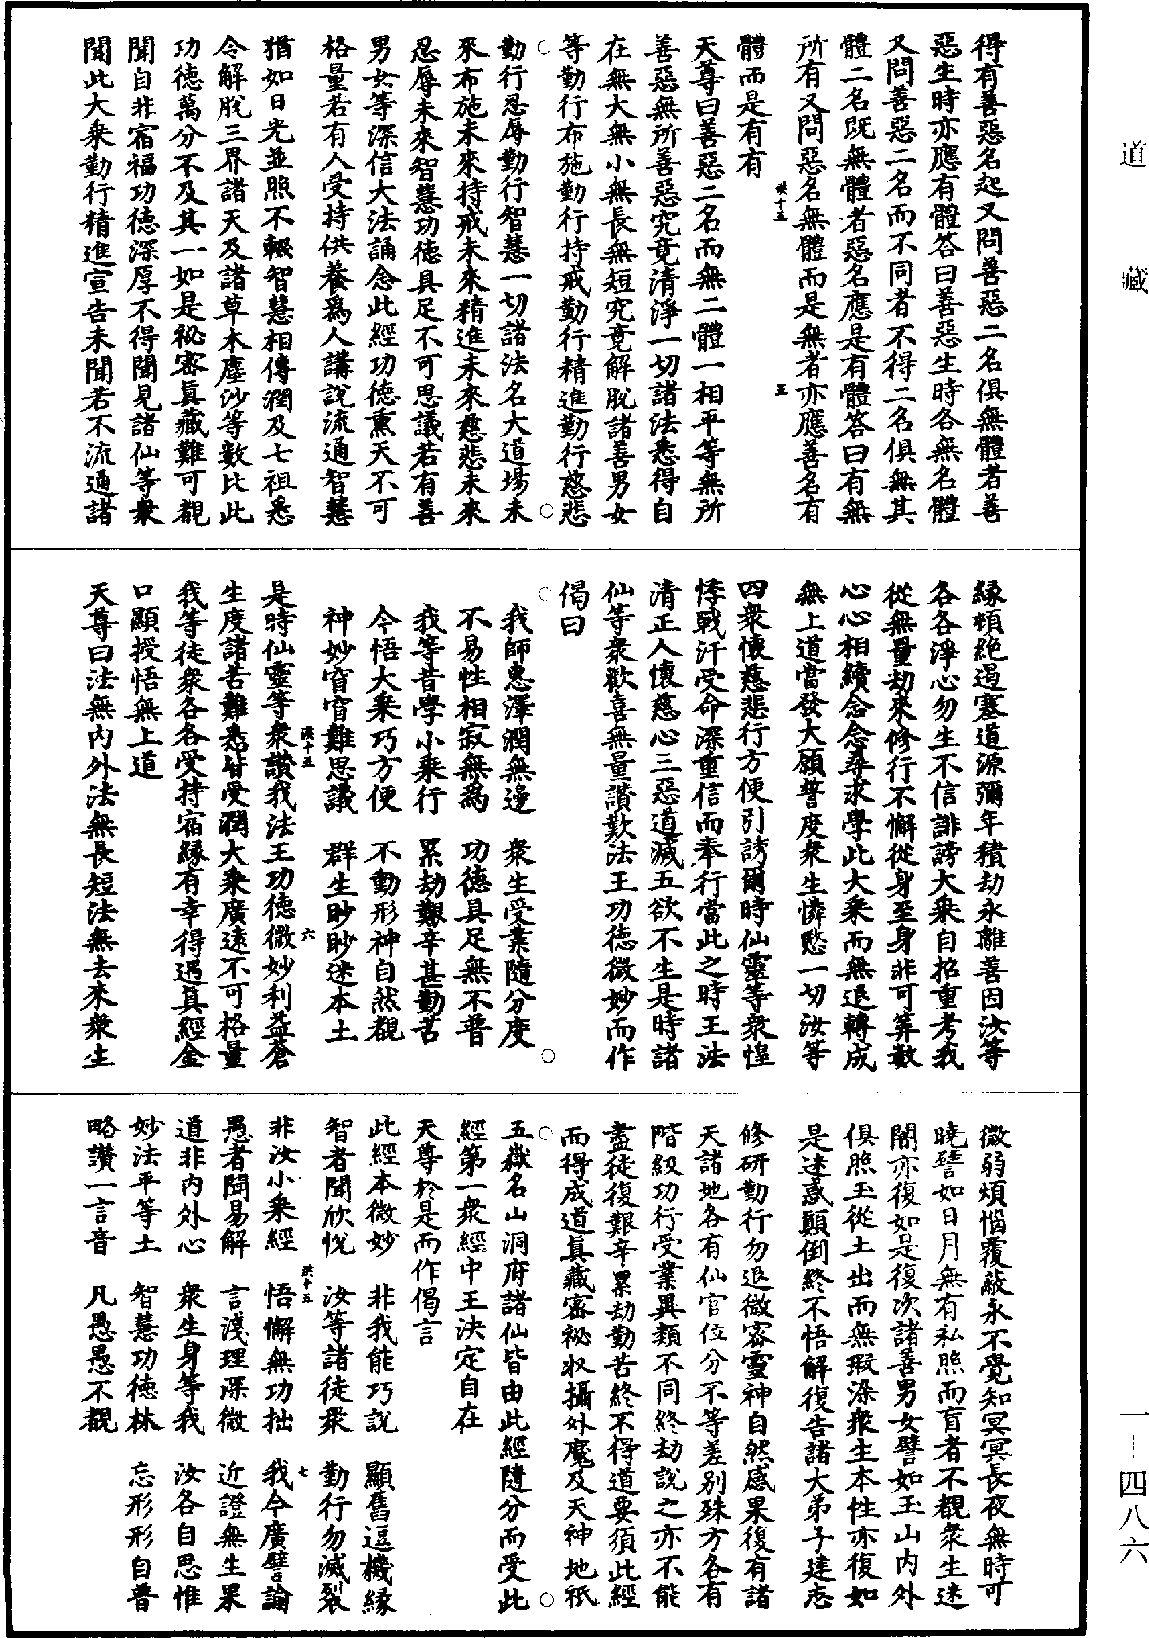 得有善惡名起又問善惡二名俱無體者善
惡生時亦應有體答曰善惡生時各無名體
又問善惡二名而不同者不得二名俱無其
體二名既無體者惡名應是有體答曰有無
所有又問惡名無體而是無者亦應善名有
體而是有有
天尊曰善惡二名而無二體一相平等無所
善惡無所善惡究竟清淨一切諸法悉得自
在無大無小無長無短究竟解脫諸善男女
等勤行布施勤行持戒勤行精進勤行慈悲
勤行忍辱勤行智慧一切諸法名大道場未
來布施未來持戒未來精進未來慈悲未來
忍辱未來智慧功德具足不可思議若有善
男女等深信大法誦念此經功德熏天不可
格量若有人受持供養爲人講說流通智慧
猶如日光並照不輟智慧相傳潤及七祖悉
令解脫三界諸天及諸草木塵沙等數比此
功德萬分不及其一如是祕密真藏難可覩
聞自非宿福功德深厚不得聞見諸仙等衆
聞此大衆勤行精進宣告未聞若不流通諸
緣頓絕遏塞道源彌年積劫永離善因汝等
各各淨心勿生不信誹謗大乘自招重考我
從無量劫來修行不懈從身至身非可筭數
心心相續念念尋求學此大乘而無退轉成
無上道當發大願誓度衆生憐愍一切汝等
四衆懷慈悲行方便引誘爾時仙靈等衆惶
悸戰汗受命深重信而奉行當此之時王法
清正人懷慈心三惡道滅五欲不生是時諸
仙等衆歡喜無量讚歎法王功德微妙而作
偈曰
我師惠澤潤無邊 衆生受業隨分度
不易性相寂無爲 功德具足無不普
我等昔學小乘行 累劫艱辛甚勤苦
今悟大乘巧方便 不動形神自然覩
神妙窅窅難思議 群生眇眇迷本土
是時仙靈等衆讚我法王功德微妙利益蒼
生度諸苦難悉皆受潤大乘廣遠不可格量
我等徒衆各各受持宿緣有幸得遇真經金
口顯授悟無上道
天尊曰法無內外法無長短法無去來衆生
微弱煩惱覆蔽永不覺知冥冥長夜無時可
曉譬如日月無有私照而盲者不覩衆生迷
闇亦復如是復次諸善男女譬如玉山內外
俱照玉從土出而無瑕染衆生本性亦復如
是迷惑顛倒終不悟解復告諸大弟子建志
修研勤行勿退微密靈神自然感果復有諸
天諸地各有仙官位分不等差別殊方各有
階級功行受業異類不同終劫說之亦不能
盡徒復艱辛累劫勤苦終不得道要須此經
而得成道真藏密祕收攝外魔及天神地祇
五嶽名山洞府諸仙皆由此經隨分而受此
經第一衆經中王決定自在
天尊於是而作偈言
此經本微妙 非我能巧說 顯舊逗機緣
智者聞欣悅 汝等諸徒衆 勤行勿滅裂
非汝小乘經 悟懈無功拙 我今廣譬論
愚者聞易解 言淺理深微 近證無生果
道非內外心 衆生身等我 汝各自思惟
妙法平等土 智慧功德林 忘形形自普
略讚一言音 凡愚愚不覩
道藏
一—四八六